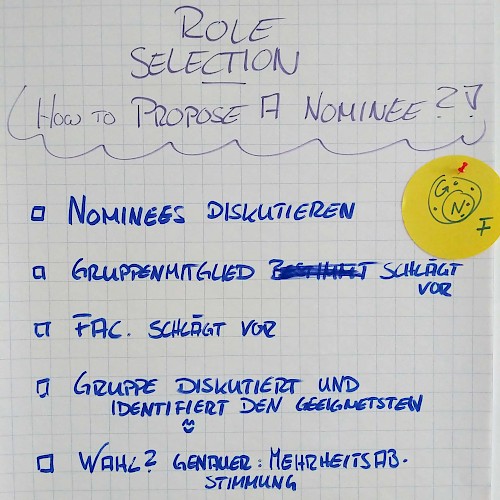 ROLE
SELECTION
HOW TO PROPOSE A NOMINEE?!
NOMINEES DISKUTIEREN
G
N
F
GRUPPENMITGLIED BESTIMMT SCHLÄGT
VOR
FAC. SCHLÄGT VOR
GRUPPE DISKUTIERT UND
IDENTIFIERT DEN GEEIGNETSTEN
WAHL? GENAUER: MEHRHEITSAB-
STIMMUNG